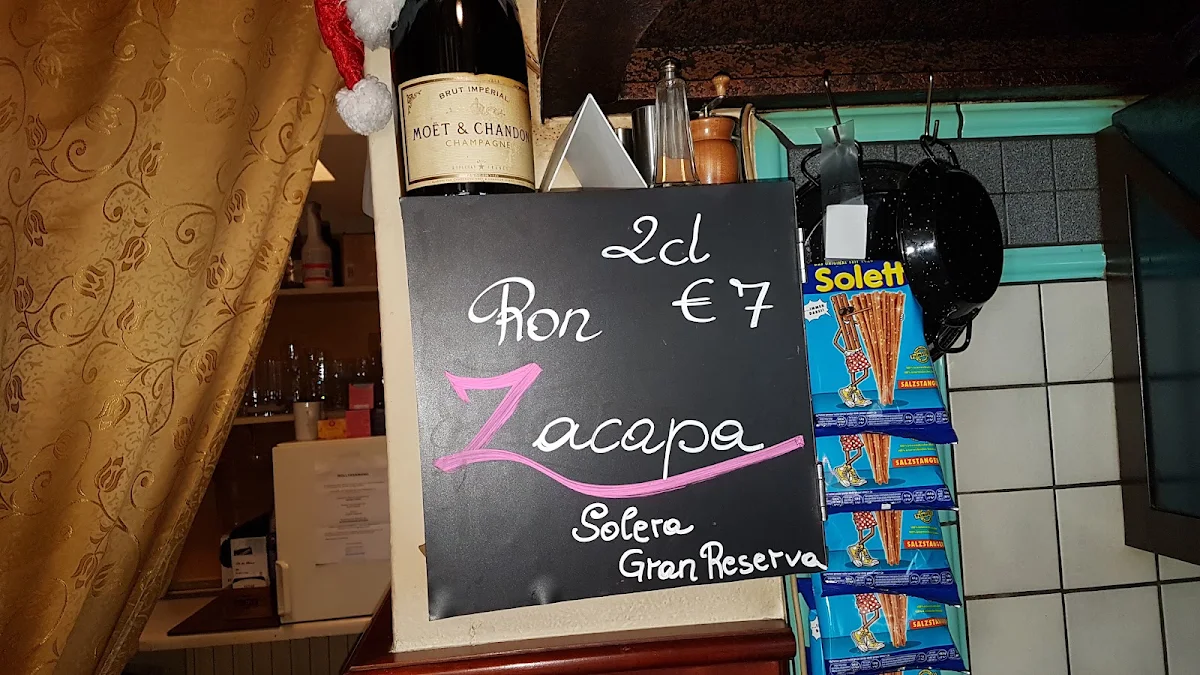 BRUT IMPÉRIAL
MOËT & CHANDON
CHAMPAGNE
2cl
€7
Ron
Zacapa
Solera
Gran Reserva
Soletti
SALZSTANGE
SALZSTANGE
SALZSTANGE
SALZSTANG